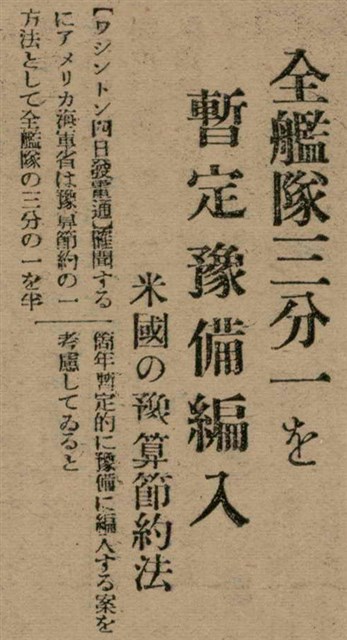 全艦隊三分一を
暫定豫備編入
米國の豫算節約法
【ワシントン四日發電通】確聞する
にアメリカ海軍省は豫算節約の一
方法として全艦隊の三分の一を半
箇年暫定的に豫備に編入する案を
考慮してゐると